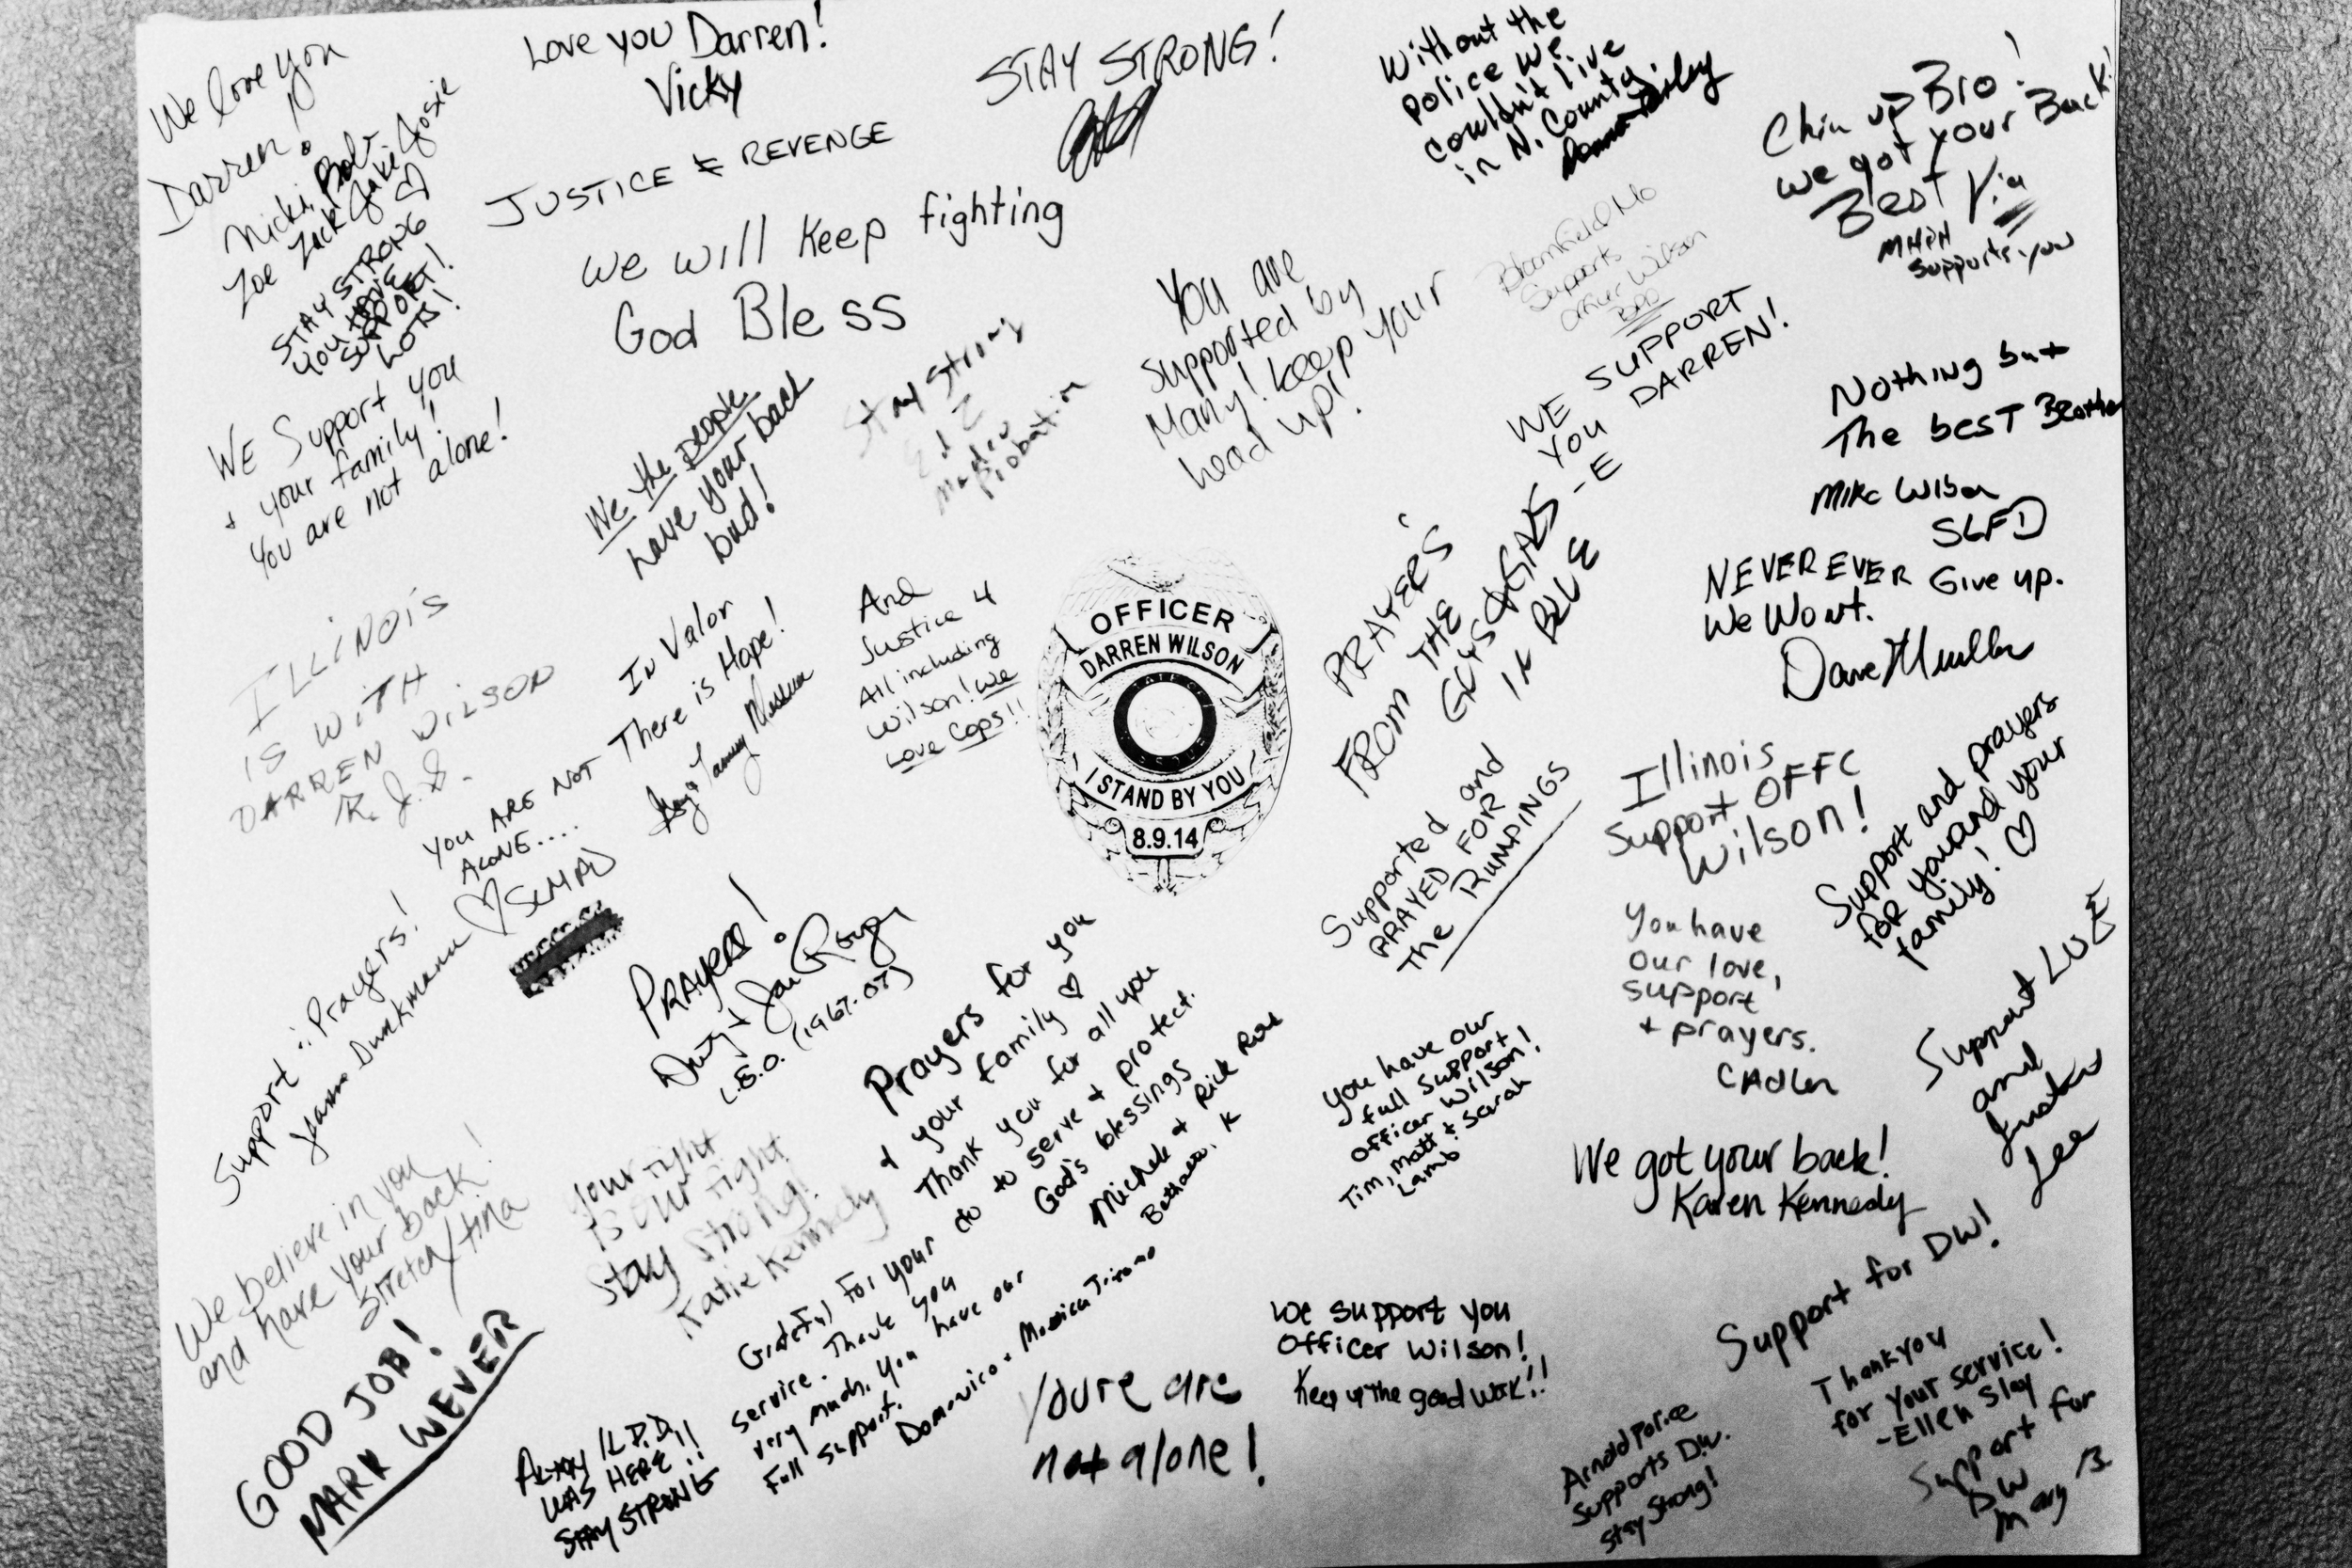 We love you
Darren!
Nicki, Bob
Zoe Zack Jake Josie
STAY STRONG
YOU HAVE
SUPPORT!
LOTS!
WE Support you
+ your family!
You are not alone!
Love you Darren!
Vicky
JUSTICE ≠ REVENGE
We will keep fighting
God Bless
STAY STRONG!
Without the
police we
couldn't live
in N. County.
Chin up Bro!
we got your Back!
Best
supports you
Bloomfield Mo
Supports
Officer Wilson
You are
supported by
Many! keep your
head up!
WE SUPPORT
YOU DARREN!
-E
Nothing but
The best Brother
Mike Wilson
SLFD
NEVER EVER Give up.
We Wont.
Dave Mueller
We the people
have your back
bud!
Stay Strong
Probation
ILLINOIS
IS WITH
DARREN WILSON
R. J. S.
In Valor
There is Hope!
And
Justice 4
All including
Wilson! We
Love Cops!!
OFFICER
DARREN WILSON
I STAND BY YOU
8.9.14
PRAYER'S
FROM THE
GUYS & GALS
IN BLUE
Supported and
PRAYED FOR
The RUMPINGS
Illinois
Support OFFC
Wilson!
Support and prayers
for you and your
family!
You have
our love,
support
+ prayers.
CAdler
Support LUE
and
Lee
YOU ARE NOT
ALONE....
SLMPD
Support & Prayers!
PRAYERS!
L.E.O. (1967-07)
Prayers for you
+ your family
Thank you for all you
do to serve + protect.
God's blessings
Michele + Rick
You have our
full support
Officer Wilson!
Tim, Matt & Sarah
Lamb
We got your back!
Karen Kennedy
We believe in you
and have your back!
Stretch/Tina
Your fight
is our fight
Stay Strong!
Katie Kennedy
GOOD JOB!
MARK WEVER
WAS HERE!!
STAY STRONG
Grateful for your
service. Thank you
very much. You have our
full support.
You're are
not alone!
We support you
Officer Wilson!
Keep up the good work!!
Support for DW!
Thank you
for your service!
-Ellen Slay
Arnold Police
Supports D.W.
Stay Strong!
Support for
DW
Mary B.